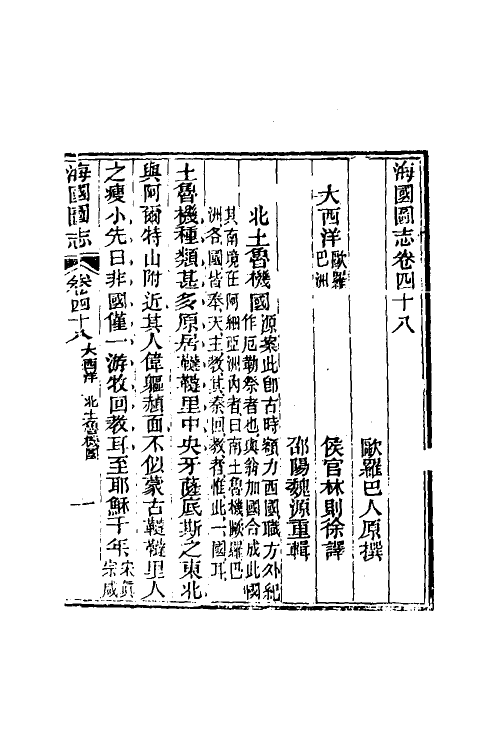 海國圖志卷四十八
歐羅巴人原撰
侯官林則徐譯
邵陽魏源重輯
大西洋歐羅巴洲
北土魯機國源案此卽古時額力西國職方外紀作厄勒祭者也與翁加國合成此國
其南境在阿細亞洲內者曰南土魯機歐羅巴洲各國皆奉天主教其奉回教者惟此一國耳
土魯機種類甚多原居韃韃里中央牙薩底斯之東北
與阿爾特山附近其人偉軀頳面不似蒙古韃韃里人
之瘦小先日非國僅一游牧回教耳至耶穌千年宋眞宗咸
海國圖志
卷四十八
大西洋 北土魯機國
一